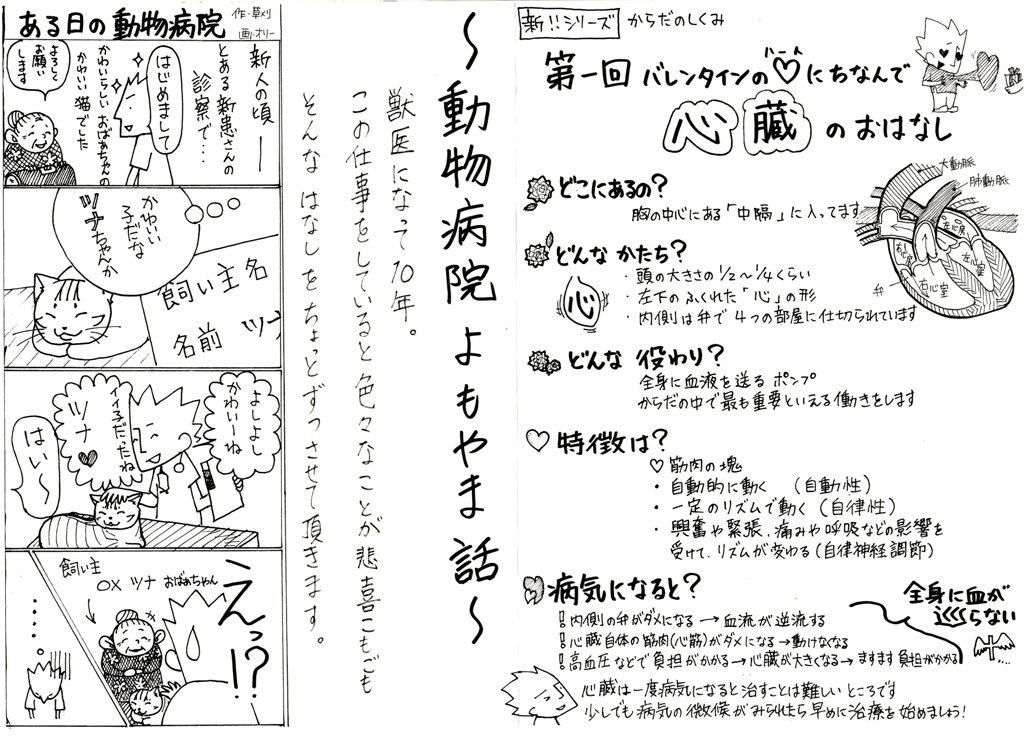 ある日の動物病院
作・草刈
画・オリー
新人の頃――
とある新患さんの
診察で・・・
はじめまして
かわいらしいおばぁちゃんの
かわいい猫でした
よろしく
お願い
します
かわいい
子だな
ツナちゃんか
飼い主名
名前 ツナ
よしよし
かわいーね
イイ子だったね
ツナ♥
はい♡
えっ!?
飼い主
○× ツナ おばぁちゃん
・・・
〜動物病院よもやま話〜
獣医になって10年。
この仕事をしていると色々なことが悲喜こもごも
そんなはなしをちょっとずつさせて頂きます。
新!!シリーズ からだのしくみ
第一回 バレンタインの♡にちなんで
ハート
心臓のおはなし
どこにあるの?
胸の中心にある「中隔」に入ってます
どんなかたち?
心
・頭の大きさの1/2〜1/4くらい
・左下のふくれた「心」の形
・内側は弁で4つの部屋に仕切られています
大動脈
肺動脈
左心房
左心室
右心房
右心室
弁
どんな役わり?
全身に血液を送るポンプ
からだの中で最も重要といえる働きをします
♡特徴は?
♡筋肉の塊
・自動的に動く (自動性)
・一定のリズムで動く(自律性)
・興奮や緊張、痛みや呼吸などの影響を
受けて、リズムが変わる(自律神経調節)
病気になると?
!内側の弁がダメになる→血流が逆流する
!心臓自体の筋肉(心筋)がダメになる→動けなくなる
!高血圧などで負担がかかる→心臓が大きくなる→ますます負担がかかる
全身に血が
送らない
心臓は一度病気になると治すことは難しいところです
少しでも病気の徴候がみられたら早めに治療を始めましょう!